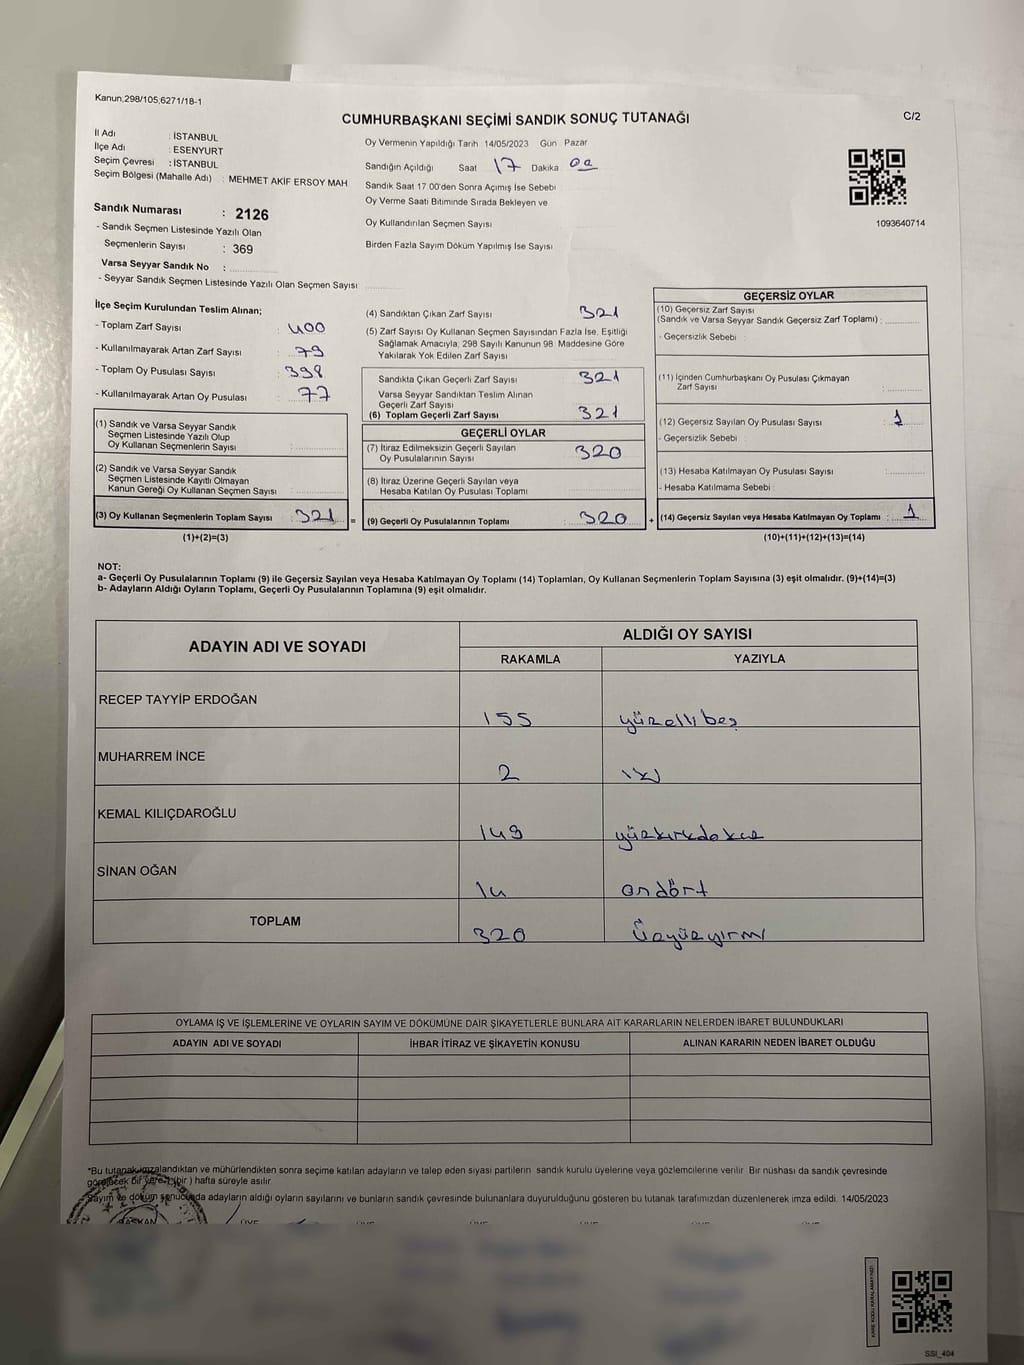 Kanun;298/105;6271/18-1
C/2
CUMHURBAŞKANI SEÇİMİ SANDIK SONUÇ TUTANAĞI
İl Adı : İSTANBUL
İlçe Adı : ESENYURT
Seçim Çevresi : İSTANBUL
Seçim Bölgesi (Mahalle Adı) : MEHMET AKİF ERSOY MAH
Sandık Numarası : 2126
- Sandık Seçmen Listesinde Yazılı Olan
Seçmenlerin Sayısı : 369
Varsa Seyyar Sandık No :
- Seyyar Sandık Seçmen Listesinde Yazılı Olan Seçmen Sayısı
Oy Vermenin Yapıldığı Tarih 14/05/2023 Gün Pazar
Sandığın Açıldığı Saat 17 Dakika 00
Sandık Saat 17.00'den Sonra Açımış İse Sebebi
Oy Verme Saati Bitiminde Sırada Bekleyen ve
Oy Kullandırılan Seçmen Sayısı
Birden Fazla Sayım Döküm Yapılmış İse Sayısı
1093640714
İlçe Seçim Kurulundan Teslim Alınan;
- Toplam Zarf Sayısı : 400
- Kullanılmayarak Artan Zarf Sayısı : 79
- Toplam Oy Pusulası Sayısı : 398
- Kullanılmayarak Artan Oy Pusulası : 77
(1) Sandık ve Varsa Seyyar Sandık
Seçmen Listesinde Yazılı Olup
Oy Kullanan Seçmenlerin Sayısı :
(2) Sandık ve Varsa Seyyar Sandık
Seçmen Listesinde Kayıtlı Olmayan
Kanun Gereği Oy Kullanan Seçmen Sayısı
(3) Oy Kullanan Seçmenlerin Toplam Sayısı : 321
(1)+(2)=(3)
(4) Sandıktan Çıkan Zarf Sayısı 321
(5) Zarf Sayısı Oy Kullanan Seçmen Sayısından Fazla İse, Eşitliği
Sağlamak Amacıyla; 298 Sayılı Kanunun 98. Maddesine Göre
Yakılarak Yok Edilen Zarf Sayısı
Sandıkta Çıkan Geçerli Zarf Sayısı 321
Varsa Seyyar Sandıktan Teslim Alınan
Geçerli Zarf Sayısı
(6) Toplam Geçerli Zarf Sayısı 321
GEÇERLİ OYLAR
(7) İtiraz Edilmeksizin Geçerli Sayılan
Oy Pusulalarının Sayısı 320
(8) İtiraz Üzerine Geçerli Sayılan veya
Hesaba Katılan Oy Pusulası Toplamı
= (9) Geçerli Oy Pusulalarının Toplamı : 320
GEÇERSİZ OYLAR
(10) Geçersiz Zarf Sayısı
(Sandık ve Varsa Seyyar Sandık Geçersiz Zarf Toplamı) :
- Geçersizlik Sebebi :
(11) İçinden Cumhurbaşkanı Oy Pusulası Çıkmayan
Zarf Sayısı :
(12) Geçersiz Sayılan Oy Pusulası Sayısı : 1
- Geçersizlik Sebebi :
(13) Hesaba Katılmayan Oy Pusulası Sayısı :
- Hesaba Katılmama Sebebi :
+ (14) Geçersiz Sayılan veya Hesaba Katılmayan Oy Toplamı : 1
(10)+(11)+(12)+(13)=(14)
NOT:
a- Geçerli Oy Pusulalarının Toplamı (9) ile Geçersiz Sayılan veya Hesaba Katılmayan Oy Toplamı (14) Toplamları, Oy Kullanan Seçmenlerin Toplam Sayısına (3) eşit olmalıdır. (9)+(14)=(3)
b- Adayların Aldığı Oyların Toplamı, Geçerli Oy Pusulalarının Toplamına (9) eşit olmalıdır.
ADAYIN ADI VE SOYADI
ALDIĞI OY SAYISI
RAKAMLA YAZIYLA
RECEP TAYYİP ERDOĞAN 155 yüzellibeş
MUHARREM İNCE 2 iki
KEMAL KILIÇDAROĞLU 149 yüzkırkdokuz
SİNAN OĞAN 14 ondört
TOPLAM 320 üçyüzyirmi
OYLAMA İŞ VE İŞLEMLERİNE VE OYLARIN SAYIM VE DÖKÜMÜNE DAİR ŞİKAYETLERLE BUNLARA AİT KARARLARIN NELERDEN İBARET BULUNDUKLARI
ADAYIN ADI VE SOYADI İHBAR İTİRAZ VE ŞİKAYETİN KONUSU ALINAN KARARIN NEDEN İBARET OLDUĞU
*Bu tutanak imzalandıktan ve mühürlendikten sonra seçime katılan adayların ve talep eden siyasi partilerin sandık kurulu üyelerine veya gözlemcilerine verilir. Bir nüshası da sandık çevresinde
görülecek bir yere 1 (bir ) hafta süreyle asılır.
Sayım ve döküm sonucunda adayların aldığı oyların sayılarını ve bunların sandık çevresinde bulunanlara duyurulduğunu gösteren bu tutanak tarafımızdan düzenlenerek imza edildi. 14/05/2023
BAŞKAN ÜYE ÜYE ÜYE ÜYE ÜYE ÜYE
KARE KODU KARALAMAYINIZ!
SSI_404